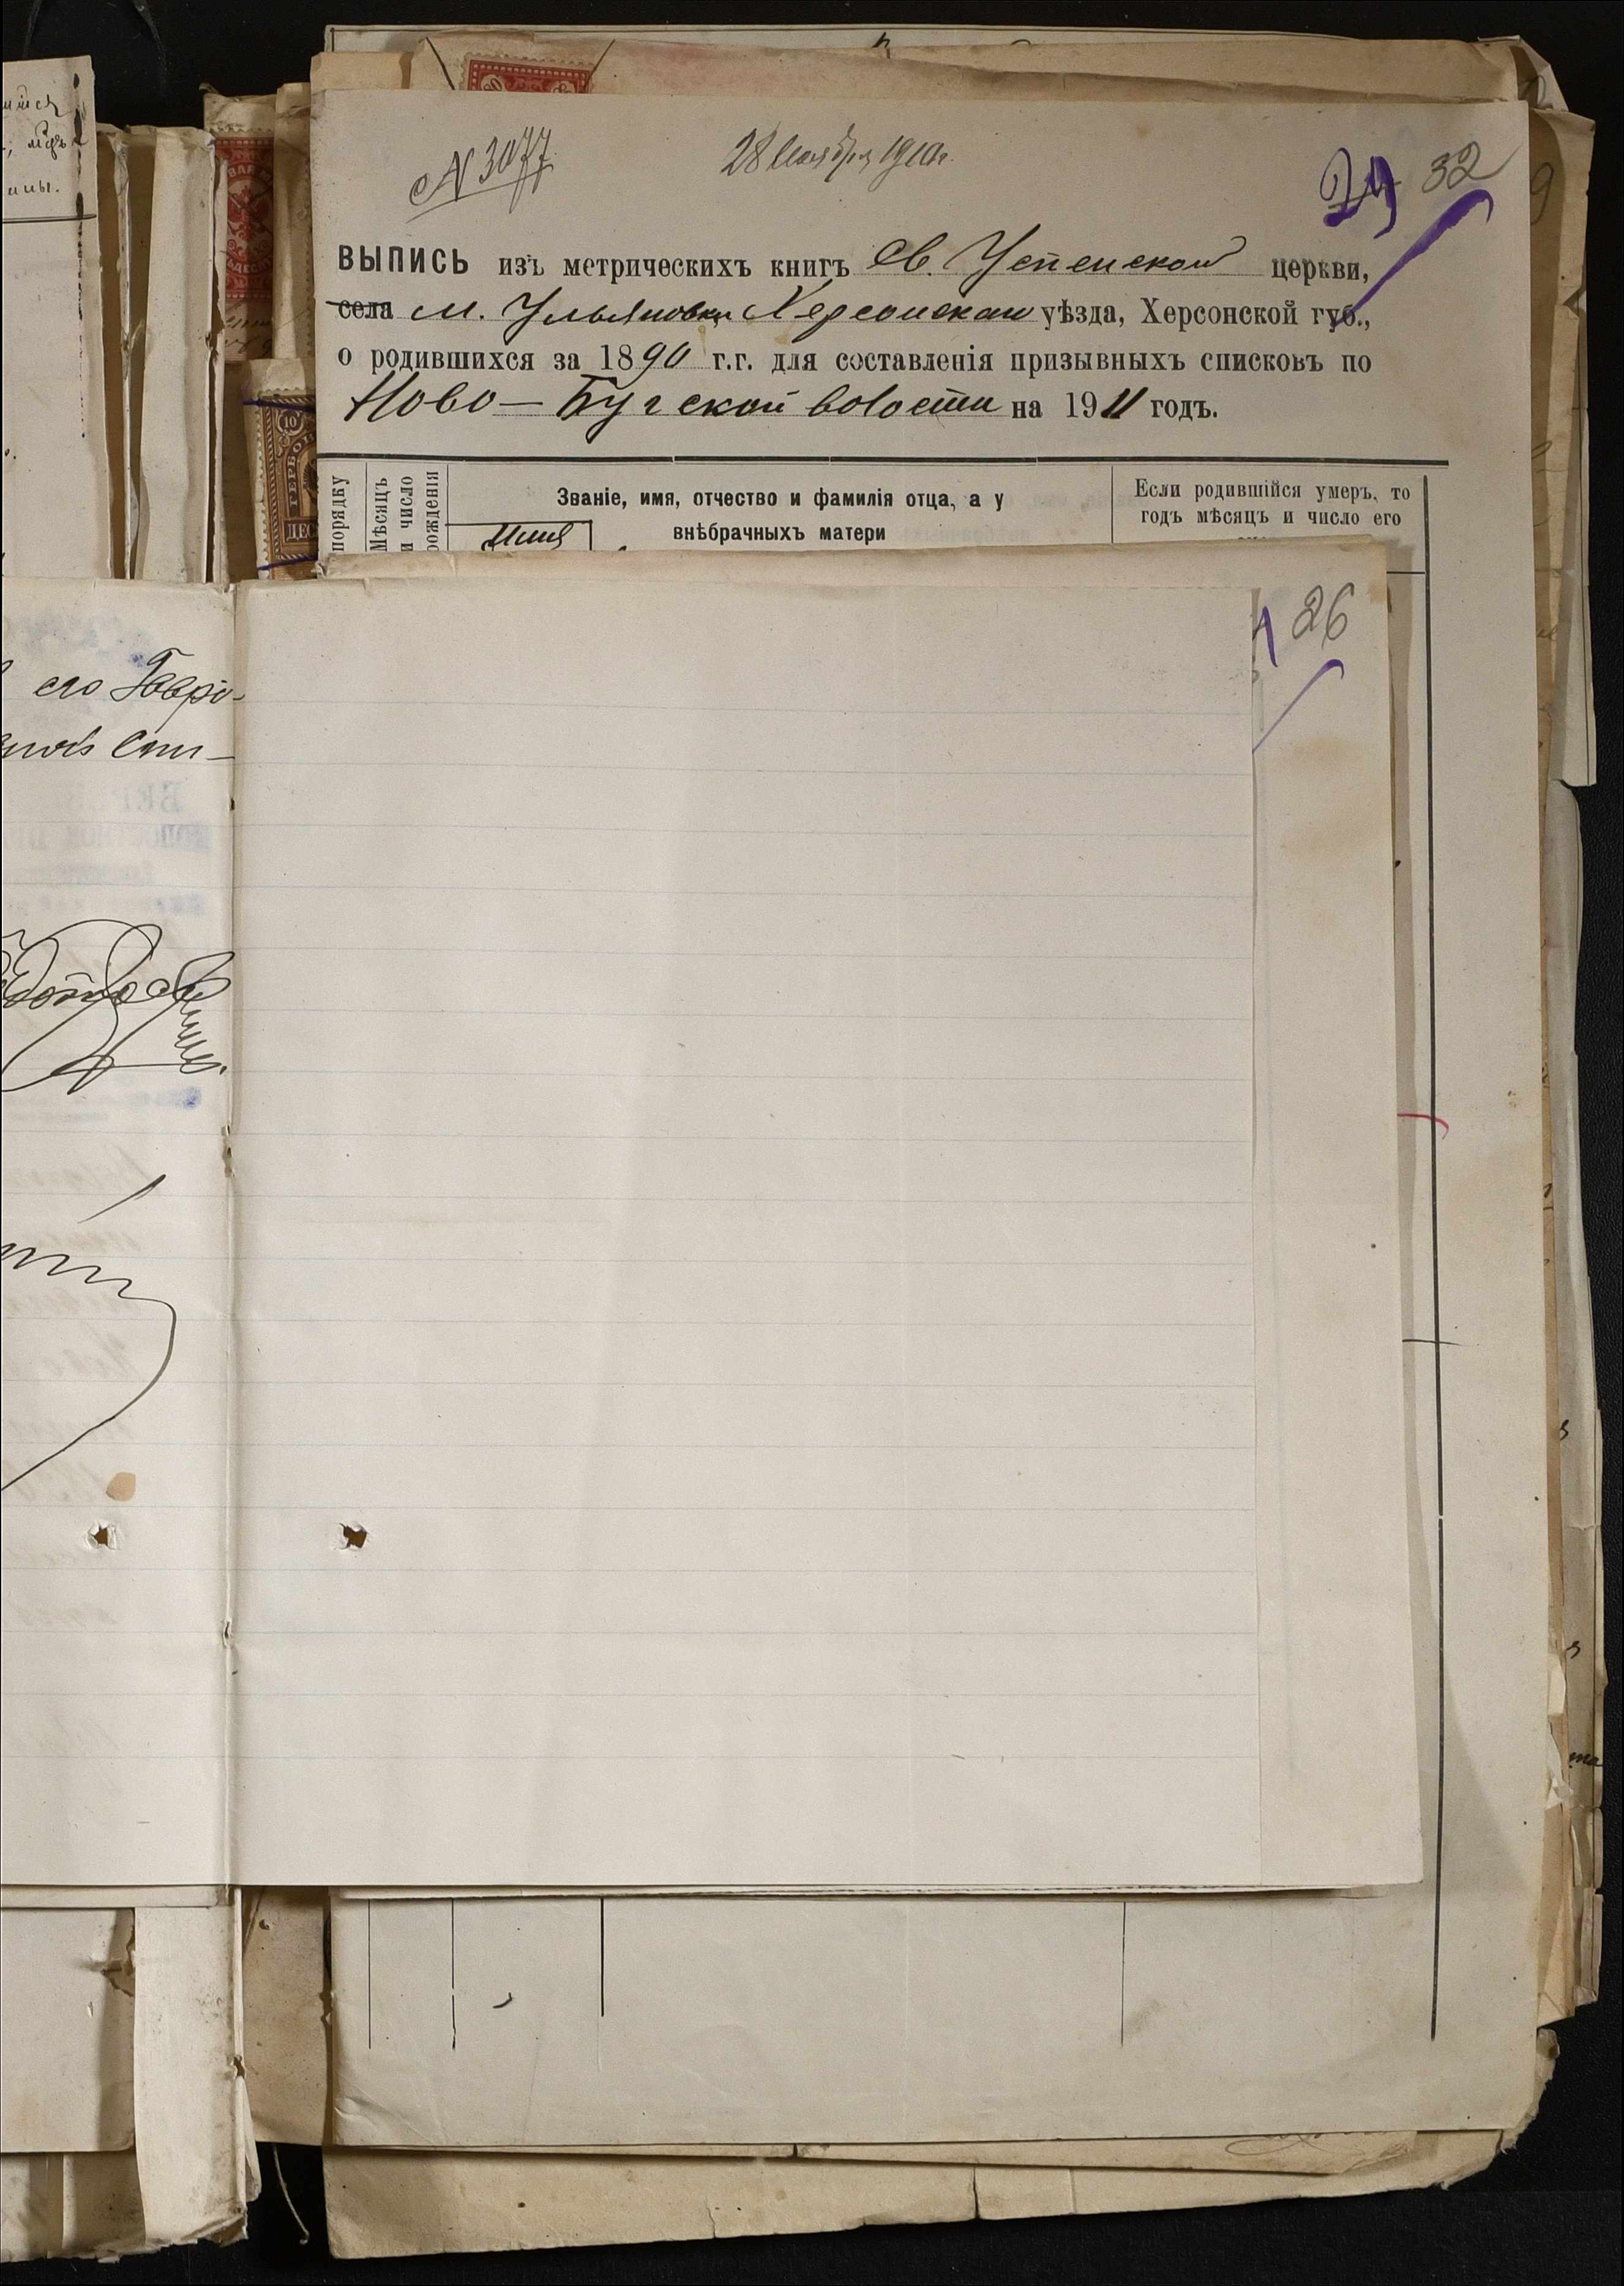 № 3077
28 Ноября 1910 г.
29 32
ВЫПИСЬ изъ метрическихъ книгъ Св. Успенской церкви,
села м. Ульяновки Херсонскаго уѣзда, Херсонской губ.,
о родившихся за 1890 г.г. для составленія призывныхъ списковъ по
Ново-Бугской волости на 1911 годъ.
порядку
Мѣсяцъ и число рожденія
Званіе, имя, отчество и фамилія отца, а у
внѣбрачныхъ матери
Имя
Если родившійся умеръ, то
годъ мѣсяцъ и число его
26
его Гаврі-
10